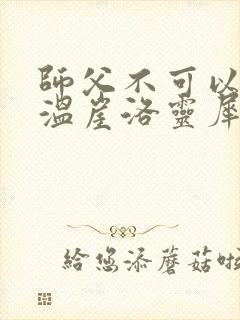 師父不可以
溫崖洛靈犀
給您添蘑菇啦